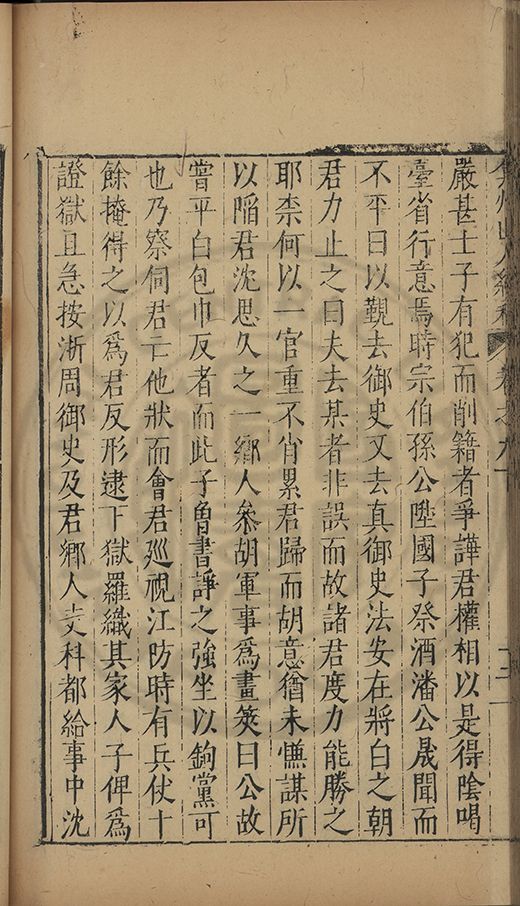 弇州山人續稿 卷之九十
嚴甚士子有犯而削籍者爭譁君權相以是得陰喝
臺省行意焉時宗伯孫公陞國子祭酒潘公晟聞而
不平曰以覲去御史又去真御史法安在將白之朝
君力止之曰夫去某者非誤而故諸君度力能勝之
耶柰何以一官重不肖累君歸而胡意猶未慊謀所
以陷君沈思久之一鄉人叅胡軍事爲畫筴曰公故
嘗平白包巾反者而此子魯書諍之強坐以鉤黨可
也乃察伺君亡他狀而會君廵視江防時有兵仗十
餘掩得之以爲君反形逮下獄羅織其家人子俾爲
證獄且急按浙周御史及君鄉人吏科都給事中沈